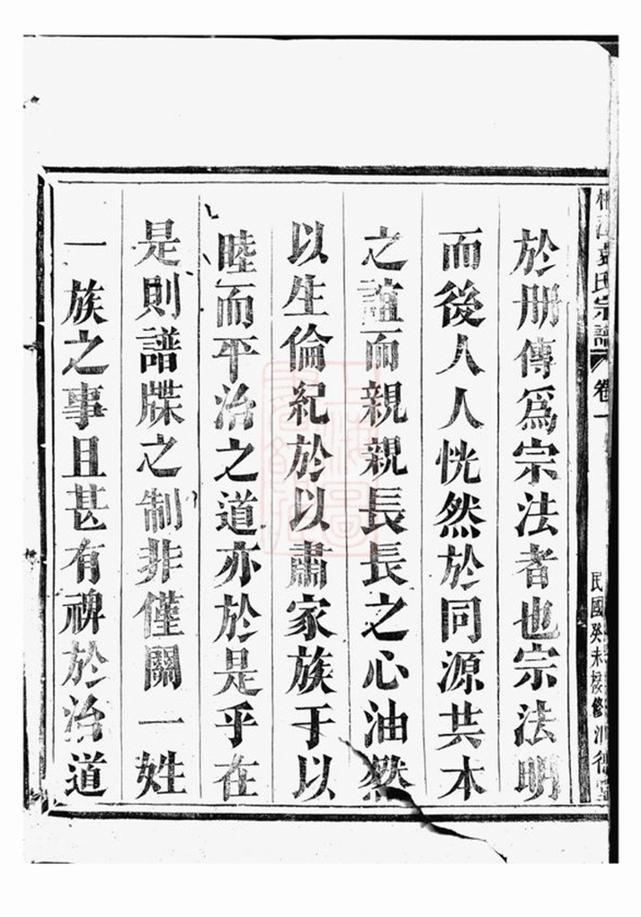 氏宗譜 卷一 民國癸未修
於册傳爲宗法者也宗法明
而後人人恍然於同源共本
之誼而親親長長之心油然
以生倫紀於以肅家族于以
睦而平治之道亦於是乎在
是則譜牒之制非僅關一姓
一族之事且甚有裨於治道